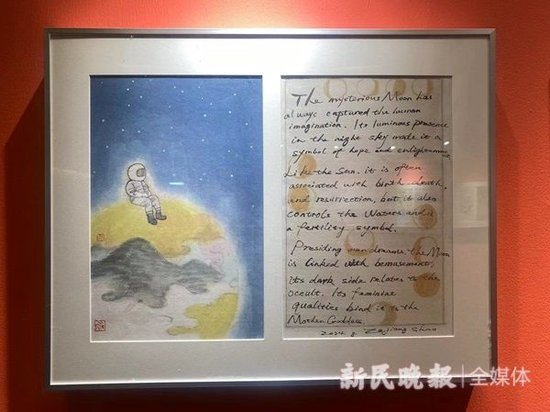 The mysterious Moon has
always captured the human
imagination. Its luminous presence
in the night sky made it a
symbol of hope and enlightenment.
Like the Sun, it is often
associated with birth, death,
and resurrection, but it also
controls the Waters and is
a fertility symbol.
Presiding over dreams, the Moon
is linked with bemusement,
its dark side relates to the
occult. Its feminine
qualities bind it to the
Mother Goddess.
2024. 8
新民晚报|全媒体